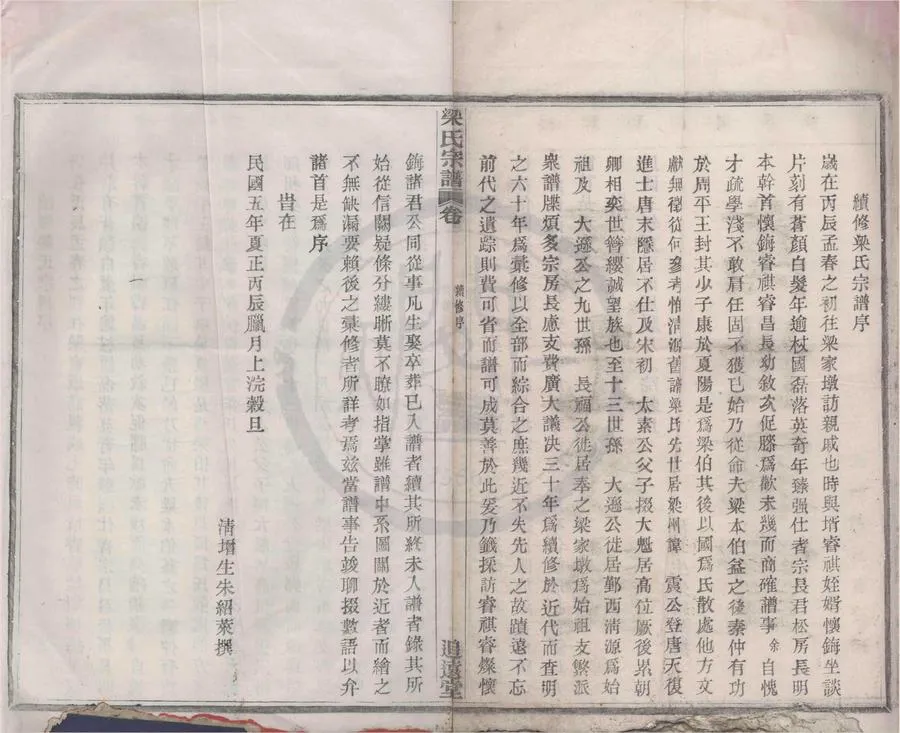 續修梁氏宗譜序
歲在丙辰孟春之初往梁家墩訪親戚也時與壻睿祺姪婿懷鋂坐談
片刻有蒼顏白髮年逾杖國磊落英奇年臻强仕者宗長君松房長明
本幹首懷鋂睿祺睿昌長幼敘次促膝爲歡未幾而商確譜事余自愧
才疏學淺不敢肩任固不獲已始乃從命夫梁本伯益之後秦仲有功
於周平王封其少子康於夏陽是爲梁伯其後以國爲氏散處他方文
獻無徵從何參考惟清源舊譜梁氏先世居梁州諱 震公登唐天復
進士唐末隱居不仕及宋初 太素公父子掇大魁居高位厥後累朝
卿相奕世簪纓誠望族也至十三世孫 大遜公徙居鄞西清源爲始
祖及 大遜公之九世孫 長福公徙居奉之梁家墩爲始祖支繁派
衆譜牒煩多宗房長慮支費廣大議決三十年爲續修於近代而查明
之六十年爲彙修以全部而綜合之庶幾近不失先人之故蹟遠不忘
前代之遺踪則費可省而譜可成莫善於此爰乃籤採訪睿祺睿燦懷
梁氏宗譜
卷
續修序
追遠堂
鋂諸君公同從事凡生娶卒葬已入譜者續其所終未入譜者錄其所
始從信闕疑條分縷晰莫不瞭如指掌雖譜中系圖關於近者而繪之
不無缺漏要賴後之彙修者所詳考焉兹當譜事告竣聊掇數語以弁
諸首是爲序
旹在
民國五年夏正丙辰臘月上浣穀旦
清增生朱紹萊撰